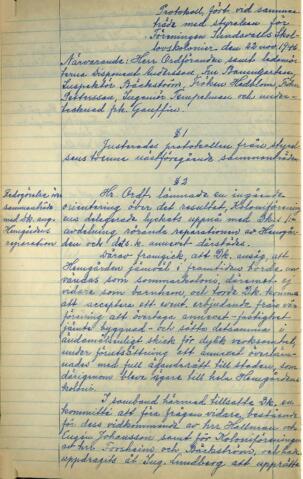 Protokoll, fört vid samman-
träde med styrelsen för
Föreningen Sundsvalls Skol-
lovskolonier den 23 nov. 1946.
Närvarande: Herr Ordföranden samt ledamö-
terna Disponent Andersson, Fru
Inspektör Bäckström, Fröken Hädblom,
Pettersson, Ingenjör och under-
tecknad frk.
§1
Justerades protokollen från styrel-
sens tvenne nästföregående sammanträden
§2
Redogörelse över
sammanträde
med Dk. ang.
Hemgårdens
reparation
Hr. Ordf. lämnade en ingående
orientering över det resultat, Koloniförening-
ens delegerade lyckats uppnå med Dk:s 1:a
avdelning rörande reparationen av Hemgår-
den och dess k. annexet därstädes.
Därav framgick, att Dk. ansåg, att
Hemgården jämväl i framtiden borde an-
vändas som sommarkoloni, däremot ej
vidare som barnhem, och att Dk. komme
att acceptera ett event. erbjudande från vår
förening att övertaga annexet-fastighet
jämte byggnad - och sätta detsamma i
ändamålsenligt skick för dylik verksamhet,
under förutsättning att annexet överläm-
nades med full äganderätt till staden, som
därigenom bleve ägare till hela Hemgårdens
koloni.
I samband härmed tillsatte Dk. en
kommitté att föra frågan vidare, bestående
för dess vidkommande av hrr Hallman och
Eugén Johansson samt för Koloniföreningen
av hrr Forsheim och Bäckström, och har
uppdragits åt Ing. Lundberg att upprätta